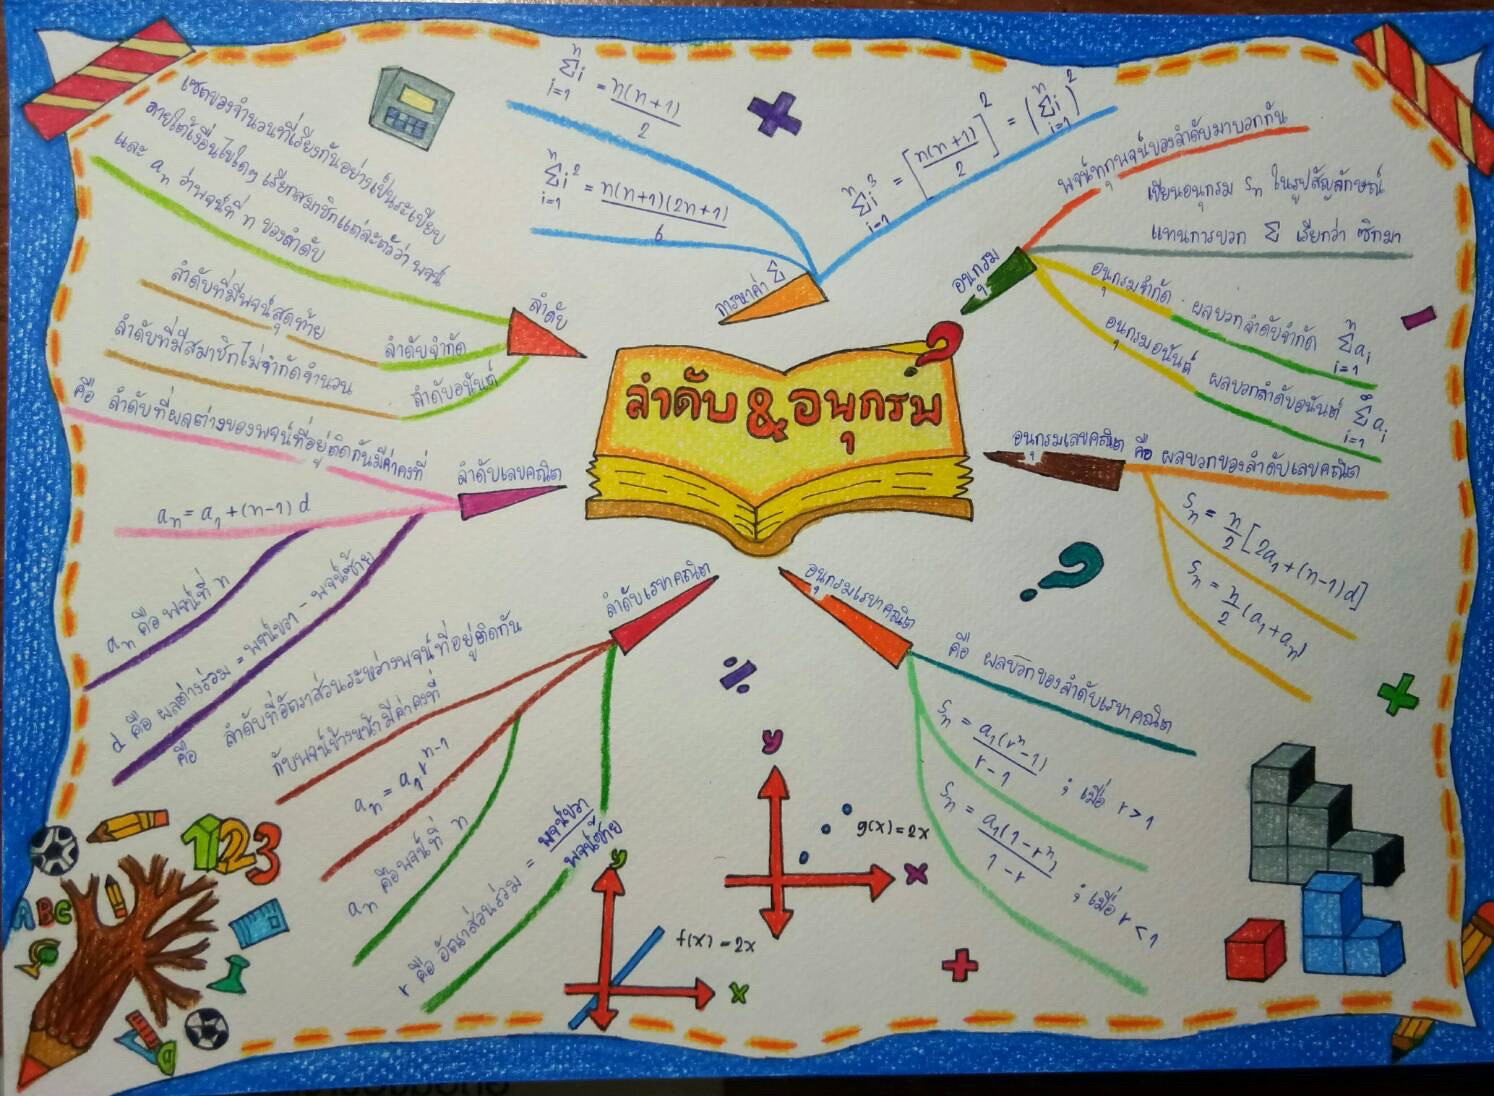 ลำดับ & อนุกรม
ลำดับ
เซตของจำนวนที่เรียงกันอย่างเป็นระเบียบ
ภายใต้เงื่อนไขใดๆ เรียกสมาชิกแต่ละตัวว่า พจน์
และ aₙ ว่าพจน์ที่ n ของลำดับ
ลำดับที่มีพจน์สุดท้าย
ลำดับจำกัด
ลำดับที่มีสมาชิกไม่จำกัดจำนวน
ลำดับอนันต์
ลำดับเลขคณิต
คือ ลำดับที่ผลต่างของพจน์ที่อยู่ติดกันมีค่าคงที่
aₙ = a₁ + (n-1) d
aₙ คือ พจน์ที่ n
d คือ ผลต่างร่วม = พจน์ขวา - พจน์ซ้าย
ลำดับเรขาคณิต
คือ ลำดับที่อัตราส่วนระหว่างพจน์ที่อยู่ติดกัน
กับพจน์ข้างหน้ามีค่าคงที่
aₙ = a₁ rⁿ⁻¹
aₙ คือพจน์ที่ n
r คือ อัตราส่วนร่วม = พจน์ขวา / พจน์ซ้าย
การหาค่า Σ
n Σ i=1 i = n(n+1) / 2
n Σ i=1 i² = n(n+1)(2n+1) / 6
n Σ i=1 i³ = [n(n+1) / 2]² = (n Σ i=1 i)²
อนุกรม
พจน์ทุกพจน์ของลำดับมาบวกกัน
เขียนอนุกรม Sₙ ในรูปสัญลักษณ์
แทนการบวก Σ เรียกว่า ซิกมา
อนุกรมจำกัด ผลบวกลำดับจำกัด n Σ i=1 aᵢ
อนุกรมอนันต์ ผลบวกลำดับอนันต์ ∞ Σ i=1 aᵢ
อนุกรมเลขคณิต คือ ผลบวกของลำดับเลขคณิต
Sₙ = n/2 [2a₁ + (n-1) d]
Sₙ = n/2 (a₁ + aₙ)
อนุกรมเรขาคณิต
คือ ผลบวกของลำดับเรขาคณิต
Sₙ = a₁(rⁿ-1) / r-1 ; เมื่อ r > 1
Sₙ = a₁(1-rⁿ) / 1-r ; เมื่อ r < 1
y
g(x) = 2x
x
y
f(x) = 2x
x
123
ABC